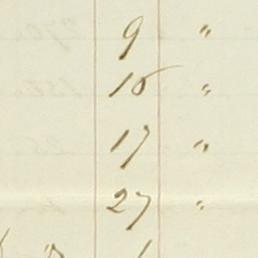 9 "
15 "
17 "
27 "